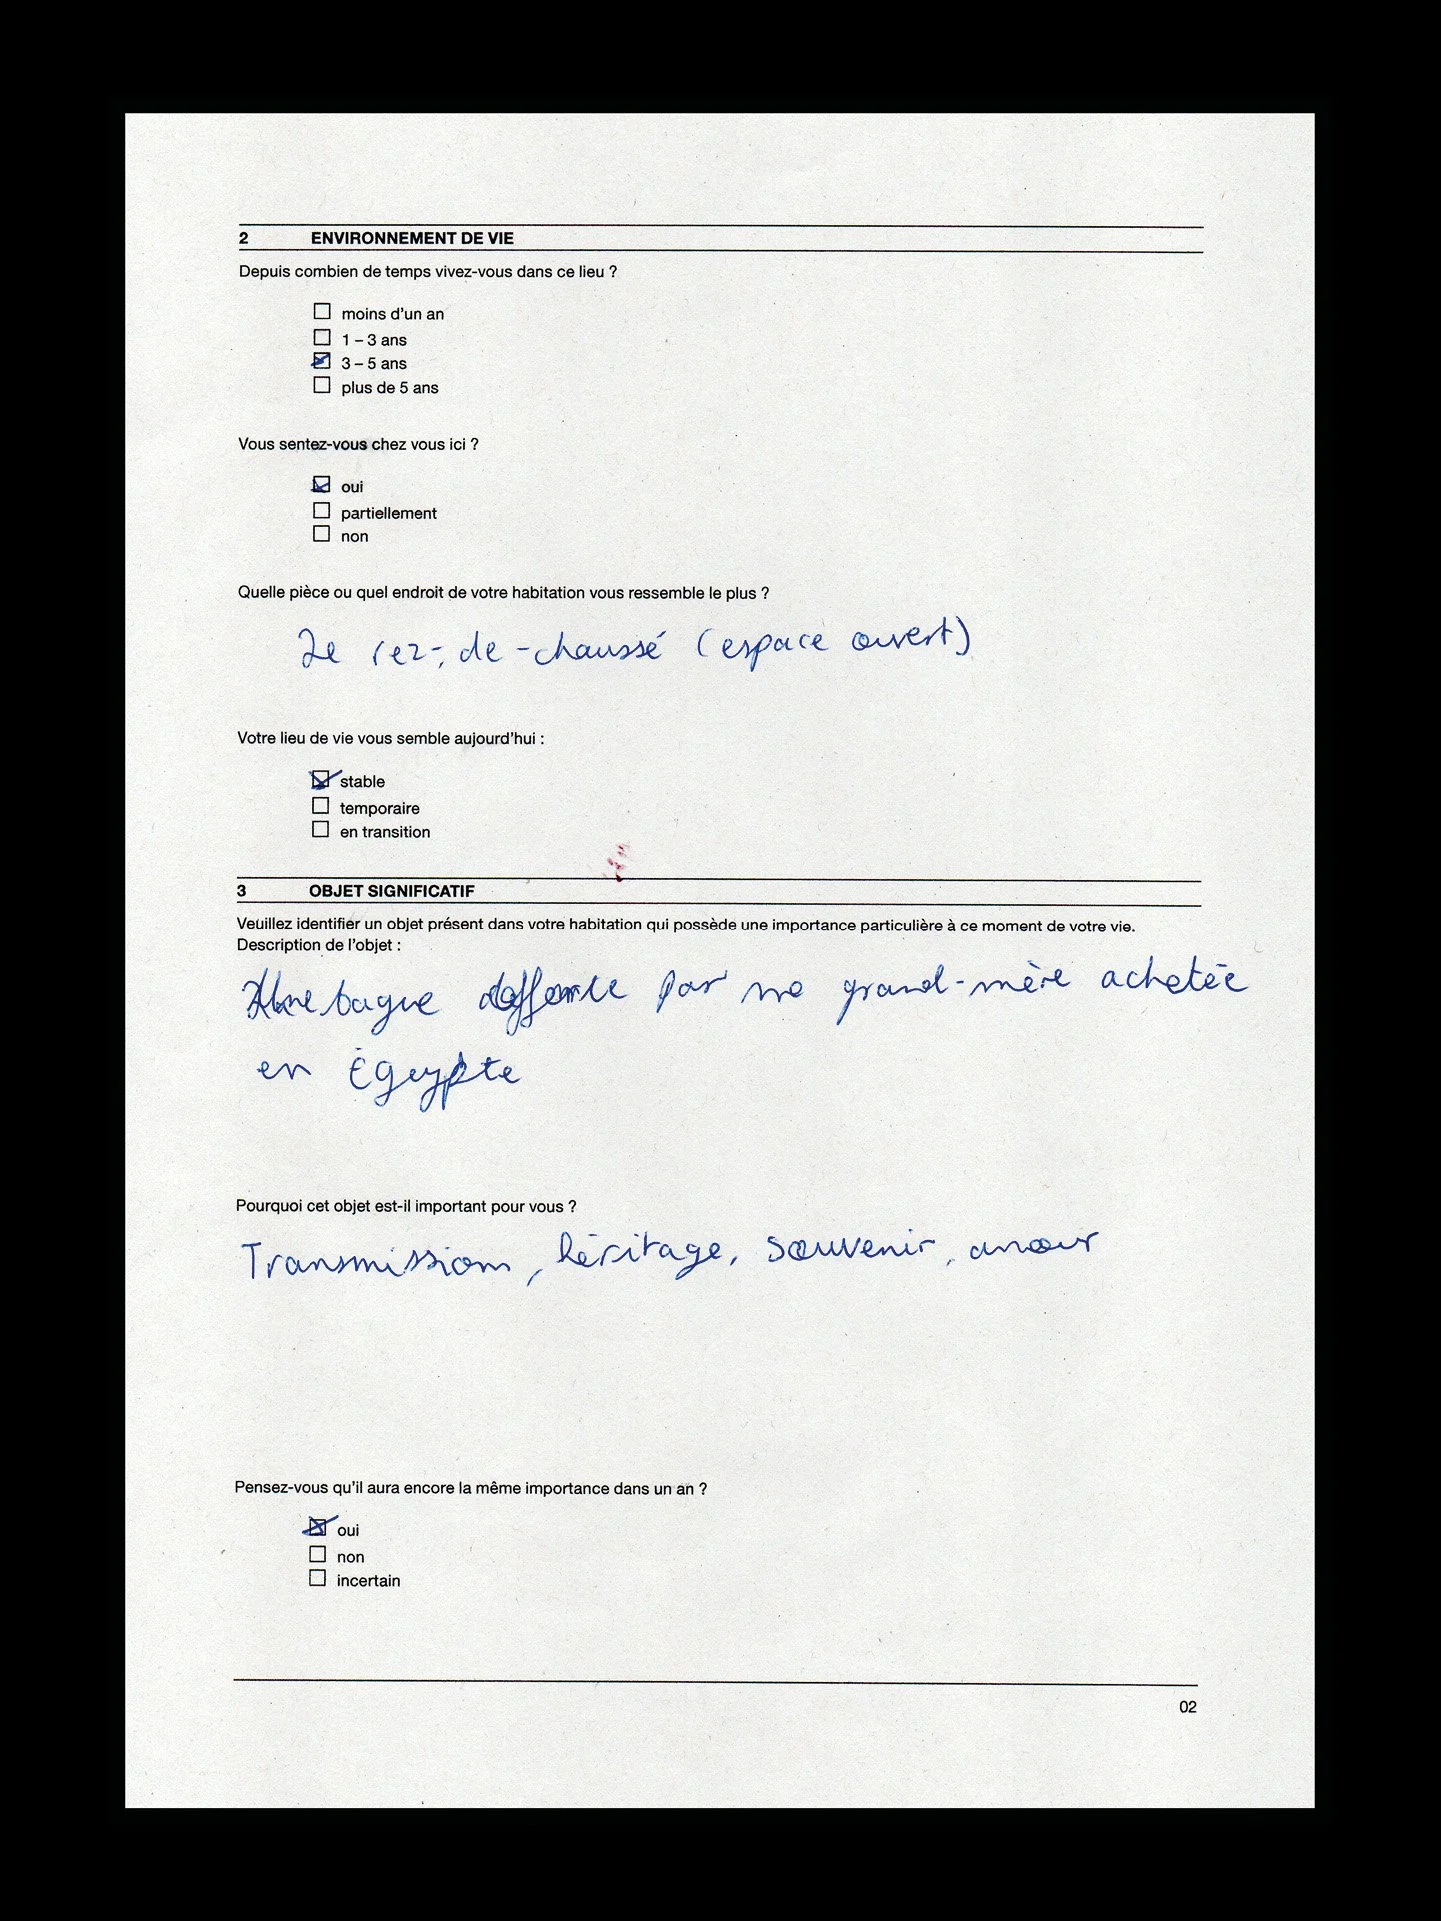 2 ENVIRONNEMENT DE VIE
Depuis combien de temps vivez-vous dans ce lieu ?
moins d'un an
1 – 3 ans
3 – 5 ans
plus de 5 ans
Vous sentez-vous chez vous ici ?
oui
partiellement
non
Quelle pièce ou quel endroit de votre habitation vous ressemble le plus ?
Le rez-de-chaussé (espace ouvert)
Votre lieu de vie vous semble aujourd'hui :
stable
temporaire
en transition
3 OBJET SIGNIFICATIF
Veuillez identifier un objet présent dans votre habitation qui possède une importance particulière à ce moment de votre vie.
Description de l'objet :
Une bague offerte par ma grand-mère achetée
en Égypte
Pourquoi cet objet est-il important pour vous ?
Transmission, héritage, souvenir, amour
Pensez-vous qu'il aura encore la même importance dans un an ?
oui
non
incertain
02